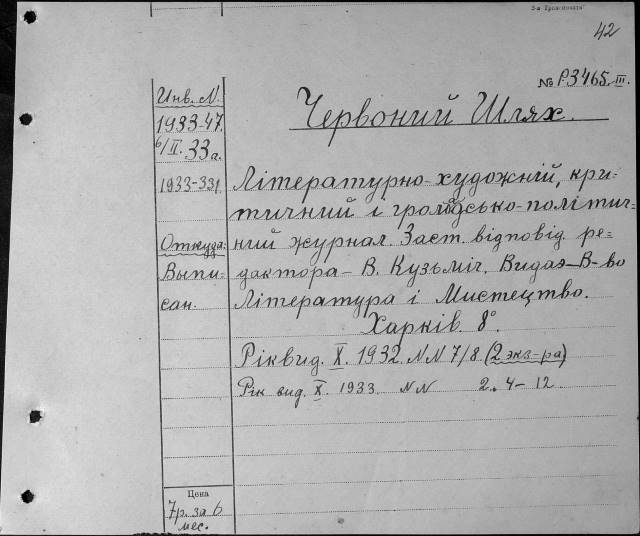 5-я Типолитогр.
42
№ Р.3465.III.
Инв. N.
1933-47.
6/II. 33 г.
1933-331
Откуда:
Выпи=
сан.
Червоний Шлях.
Літературно-художній, кри-
тичний і громадсько-політич=
ний журнал. Заст. відповід. ре=
дактора – В. Кузьміч. Видає В-во
Література і Мистецтво.
Харків. 8°
Рік вид. X. 1932. NN 7/8. (2 экз-ра)
Рік вид. X. 1933. NN 2. 4 – 12.
Цена
7р. за 6
мес.